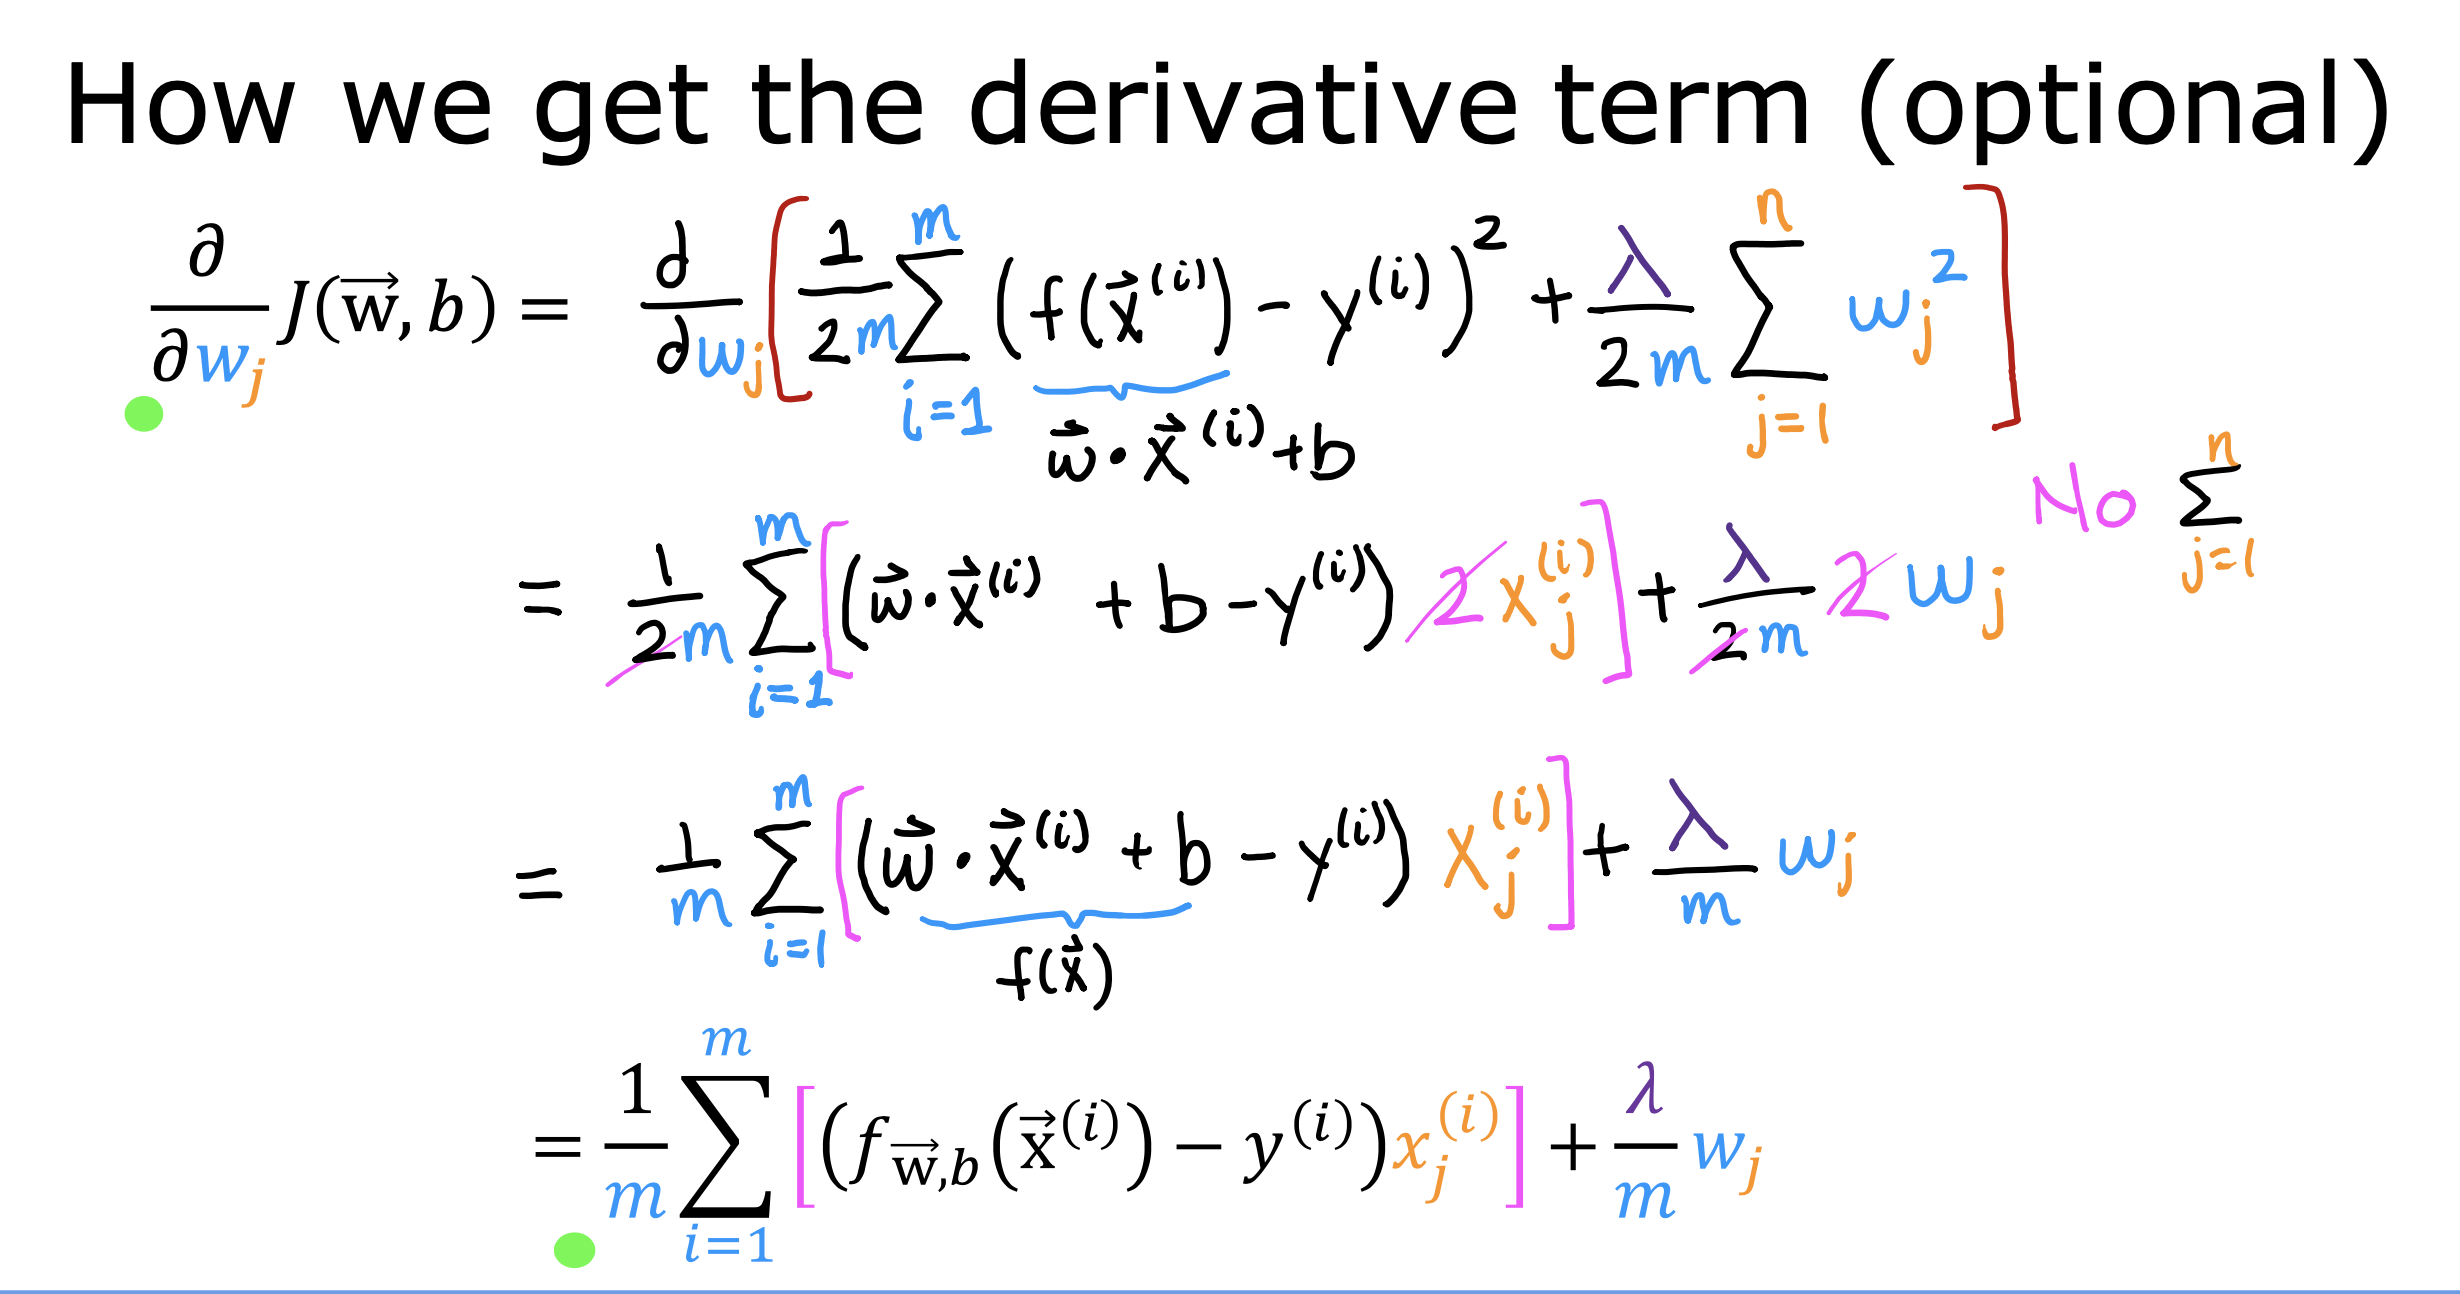 How we get the derivative term (optional)
∂/∂w_j J(w⃗, b) = ∂/∂w_j [ 1/2m Σ_{i=1}^{m} (f(x⃗^(i)) − y^(i))² + λ/2m Σ_{j=1}^{n} w_j² ]
w⃗ · x⃗^(i) + b
No Σ_{j=1}^{n}
= 1/2m Σ_{i=1}^{m} [ (w⃗ · x⃗^(i) + b − y^(i)) 2 x_j^(i) ] + λ/2m 2 w_j
= 1/m Σ_{i=1}^{m} [ (w⃗ · x⃗^(i) + b − y^(i)) x_j^(i) ] + λ/m w_j
f(x⃗)
= 1/m Σ_{i=1}^{m} [ (f_{w⃗,b}(x⃗^(i)) − y^(i)) x_j^(i) ] + λ/m w_j